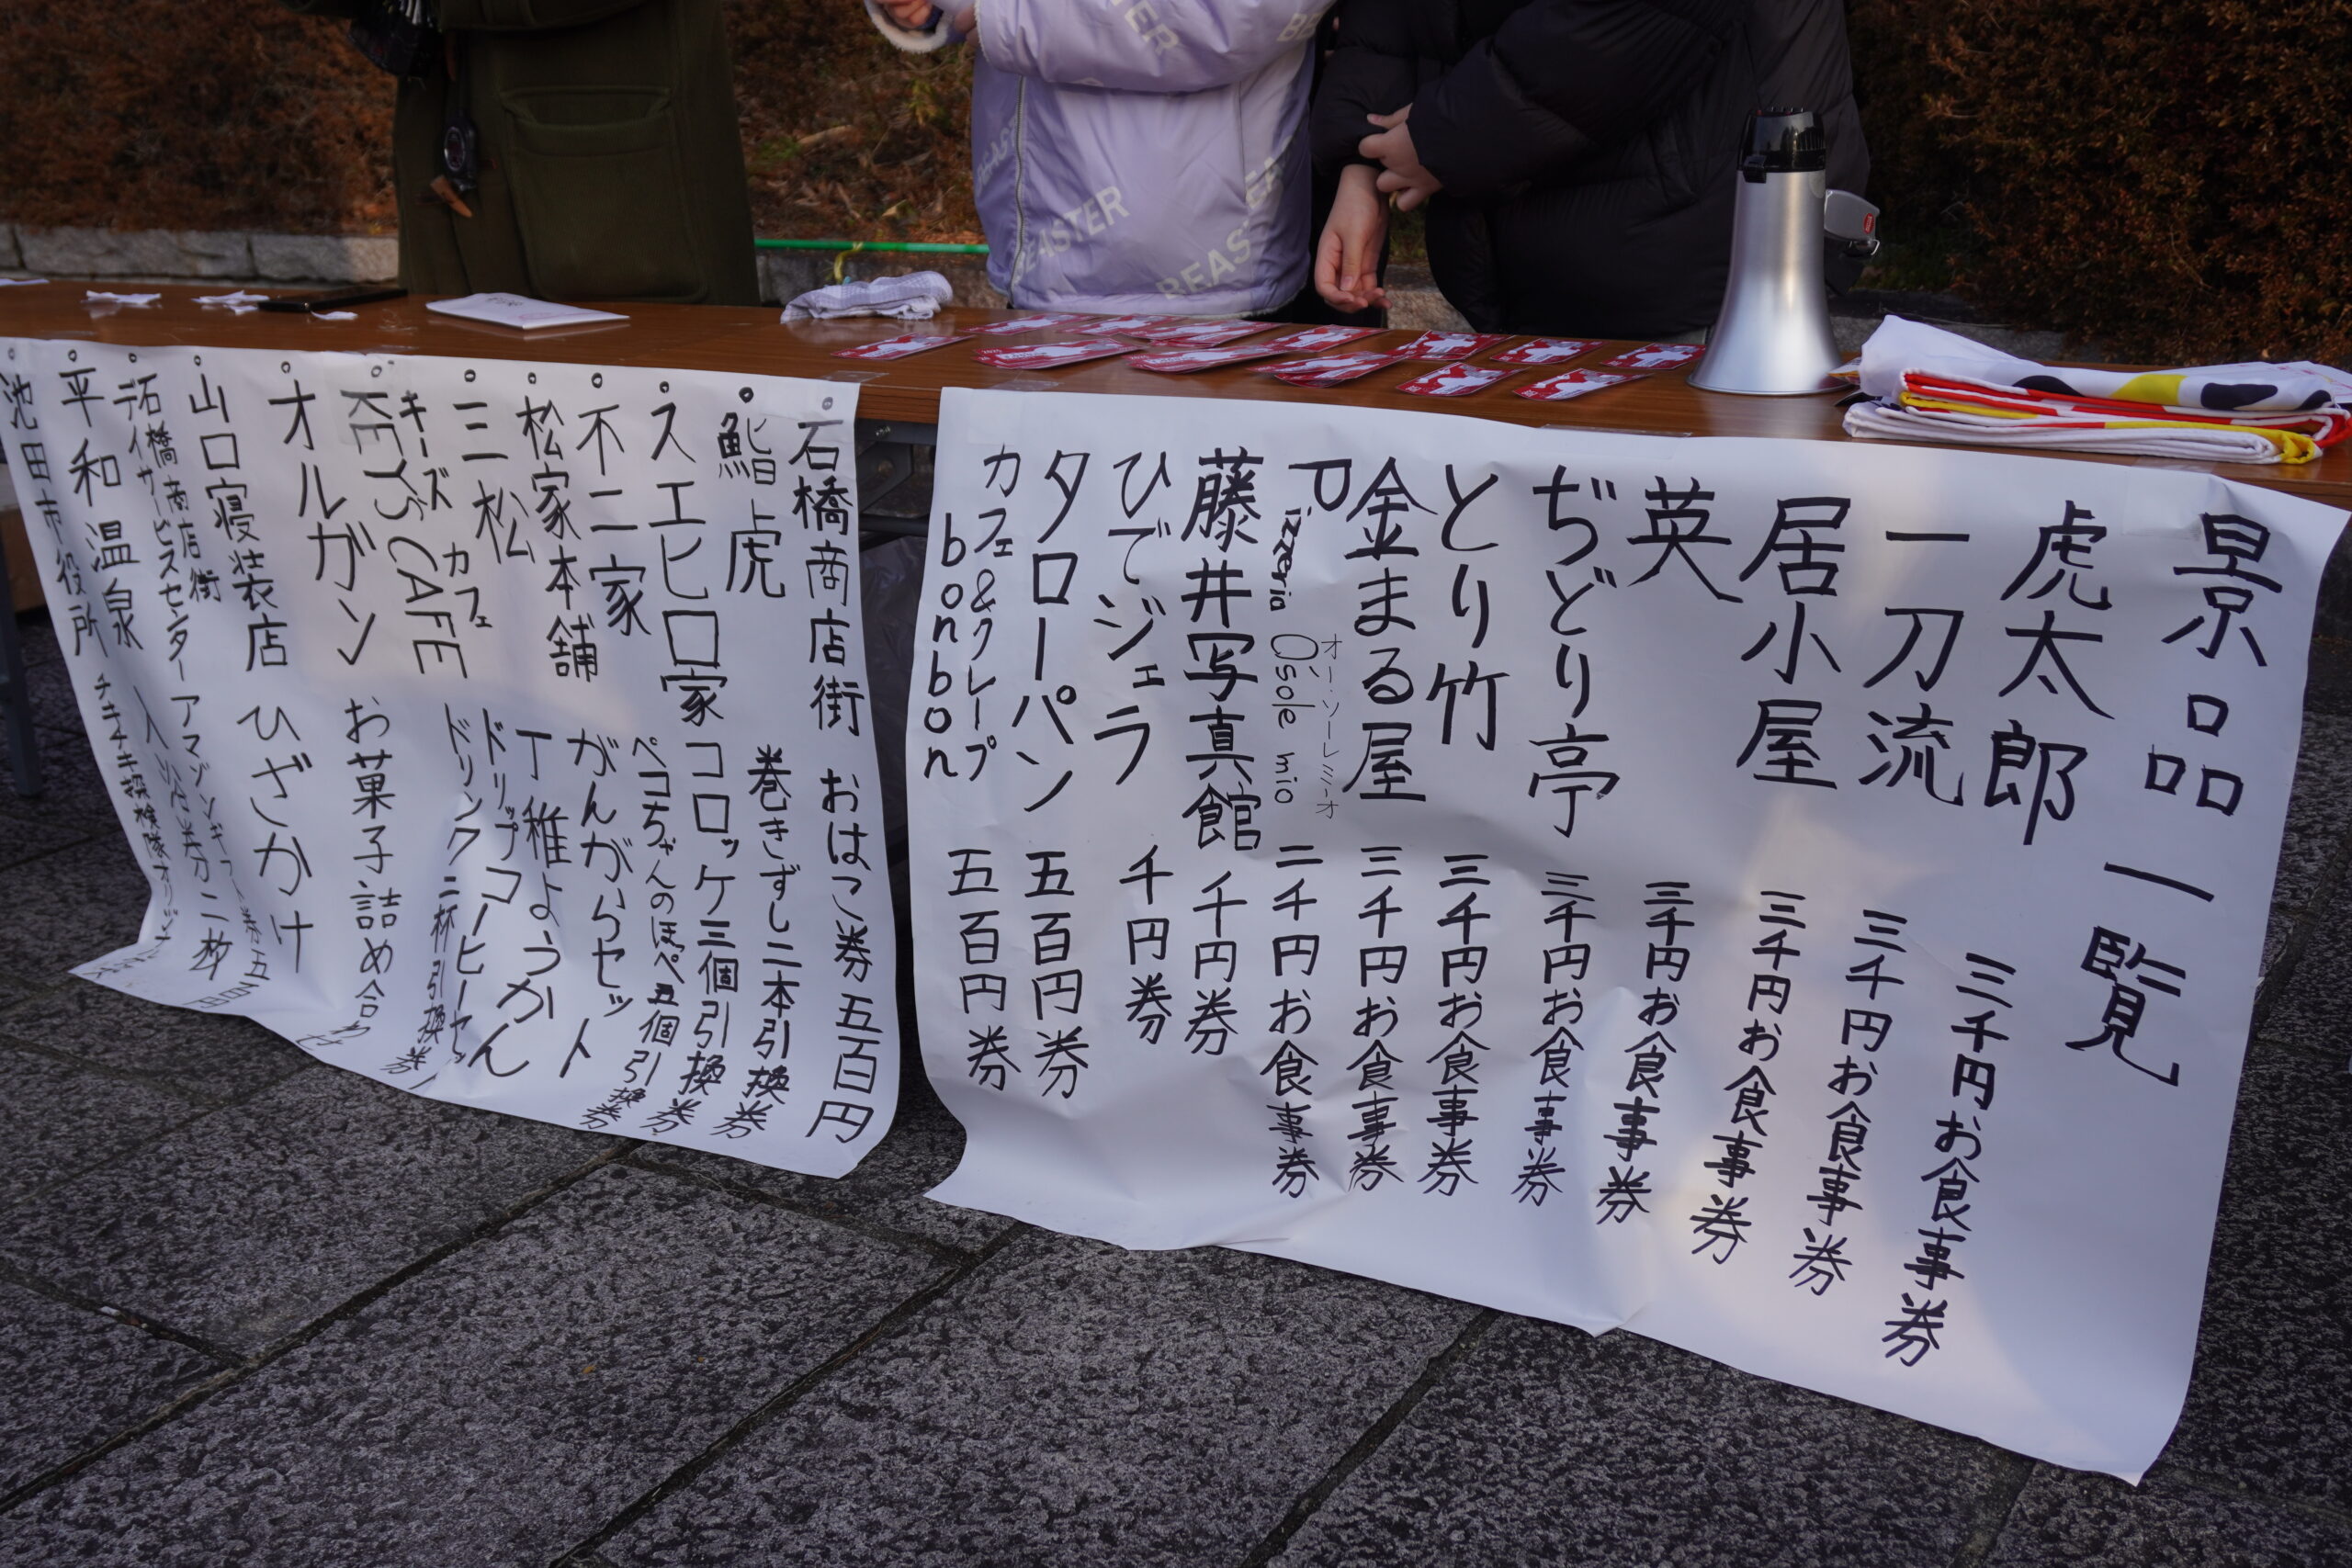 景品一覧
虎太郎 三千円お食事券
一刀流 三千円お食事券
居小屋 三千円お食事券
英 三千円お食事券
ぢどり亭 三千円お食事券
とり竹 三千円お食事券
金まる屋 三千円お食事券
Pizzeria Osole mio 二千円お食事券
オー・ソーレミーオ
藤井写真館 千円券
ひでジェラ 千円券
タローパン 五百円券
カフェ&クレープ
bonbon 五百円券
石橋商店街 おはこ券 五百円
鮨 虎 巻きずし二本引換券
スエヒロ家 コロッケ三個引換券
不二家 ペコちゃんのほっぺ五個引換券
松家本舗 がんがらセット
三松 丁稚ようかん
キーズ カフェ ドリップコーヒーセット
KEY'S CAFE ドリンク二杯引換券
オルガン お菓子詰め合わせ
山口寝装店 ひざかけ
石橋商店街
デイサービスセンター アマゾンギフト券五百円
平和温泉 入浴券二枚
池田市役所 チキチキ探検隊
BEASTER
BEASTER